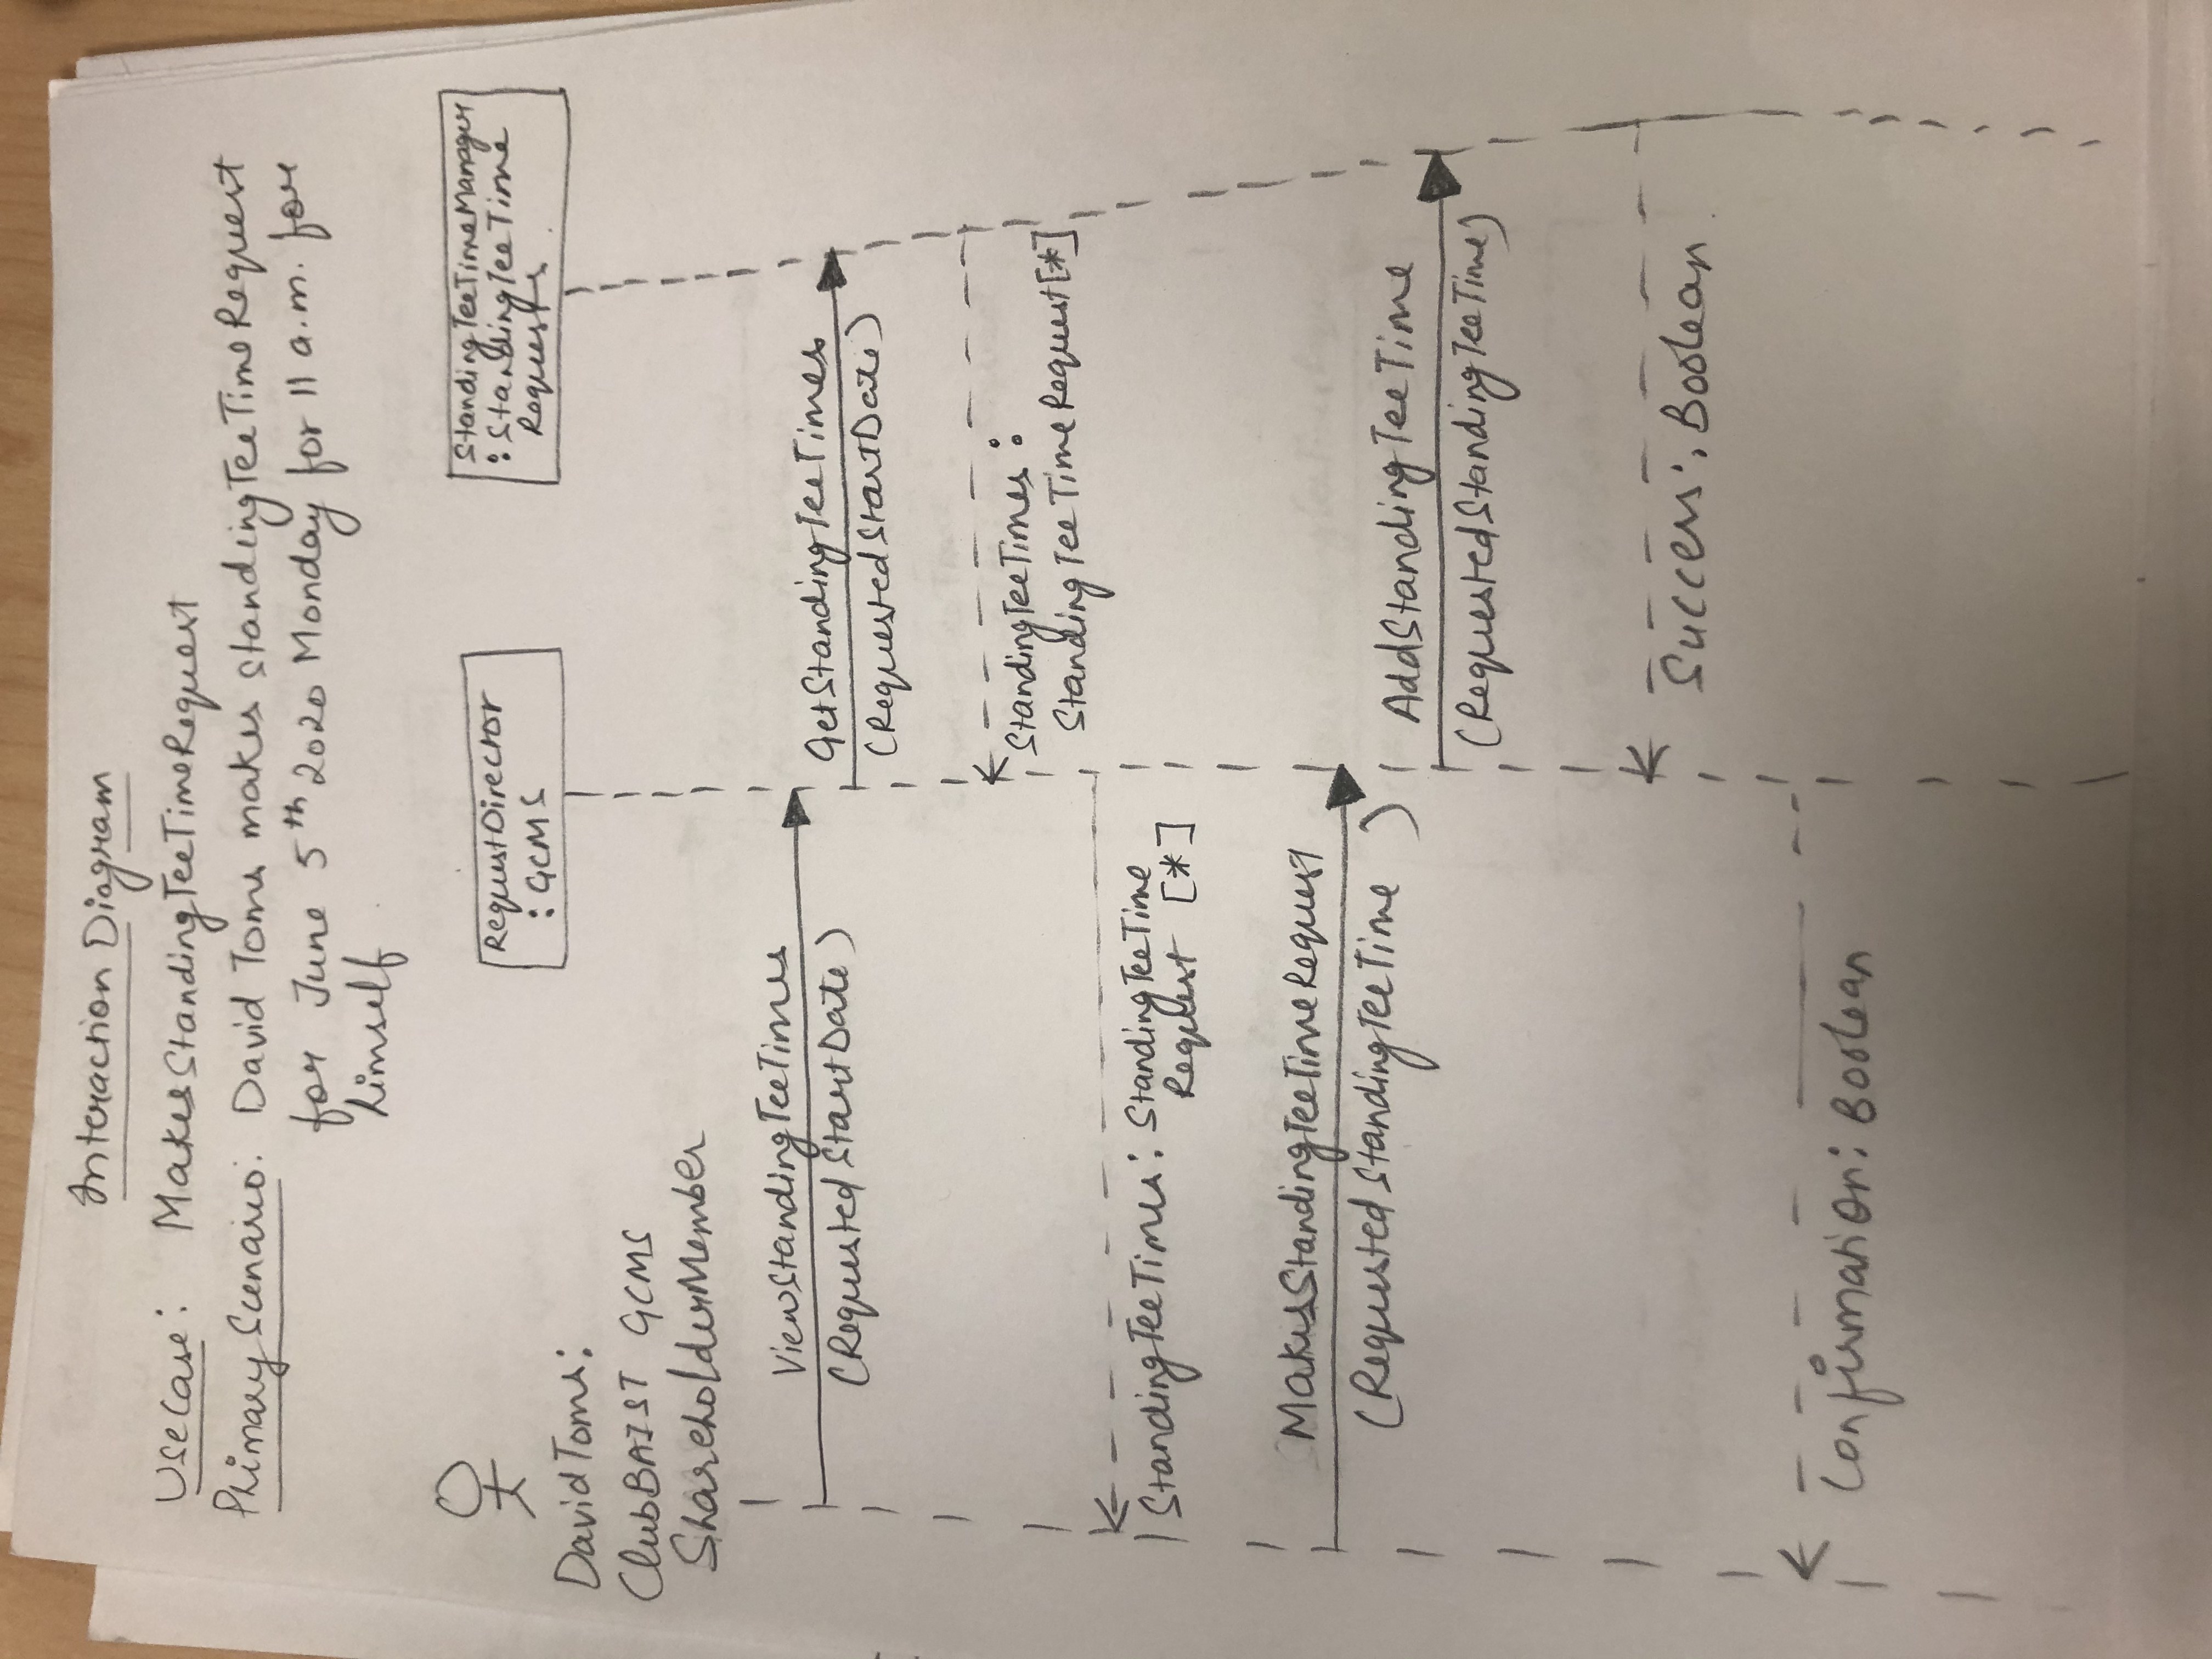 Interaction Diagram
UseCase: MakesStandingTeeTimeRequest
Primary Scenario: David Toms makes StandingTeeTimeRequest
for June 5th 2020 Monday for 11 a.m. for
himself
DavidToms:
ClubBAIST GCMS
ShareholderMember
RequestDirector
: GCMS
StandingTeeTimeManager
: StandingTeeTime
Requests
ViewStandingTeeTimes
(RequestedStartDate)
GetStandingTeeTimes
(RequestedStartDate)
StandingTeeTimes:
StandingTeeTimeRequest[*]
StandingTeeTimes: StandingTeeTime
Request [*]
MakesStandingTeeTimeRequest
(RequestedStandingTeeTime )
AddStandingTeeTime
(RequestedStandingTeeTime)
Success: Boolean
Confirmation: Boolean